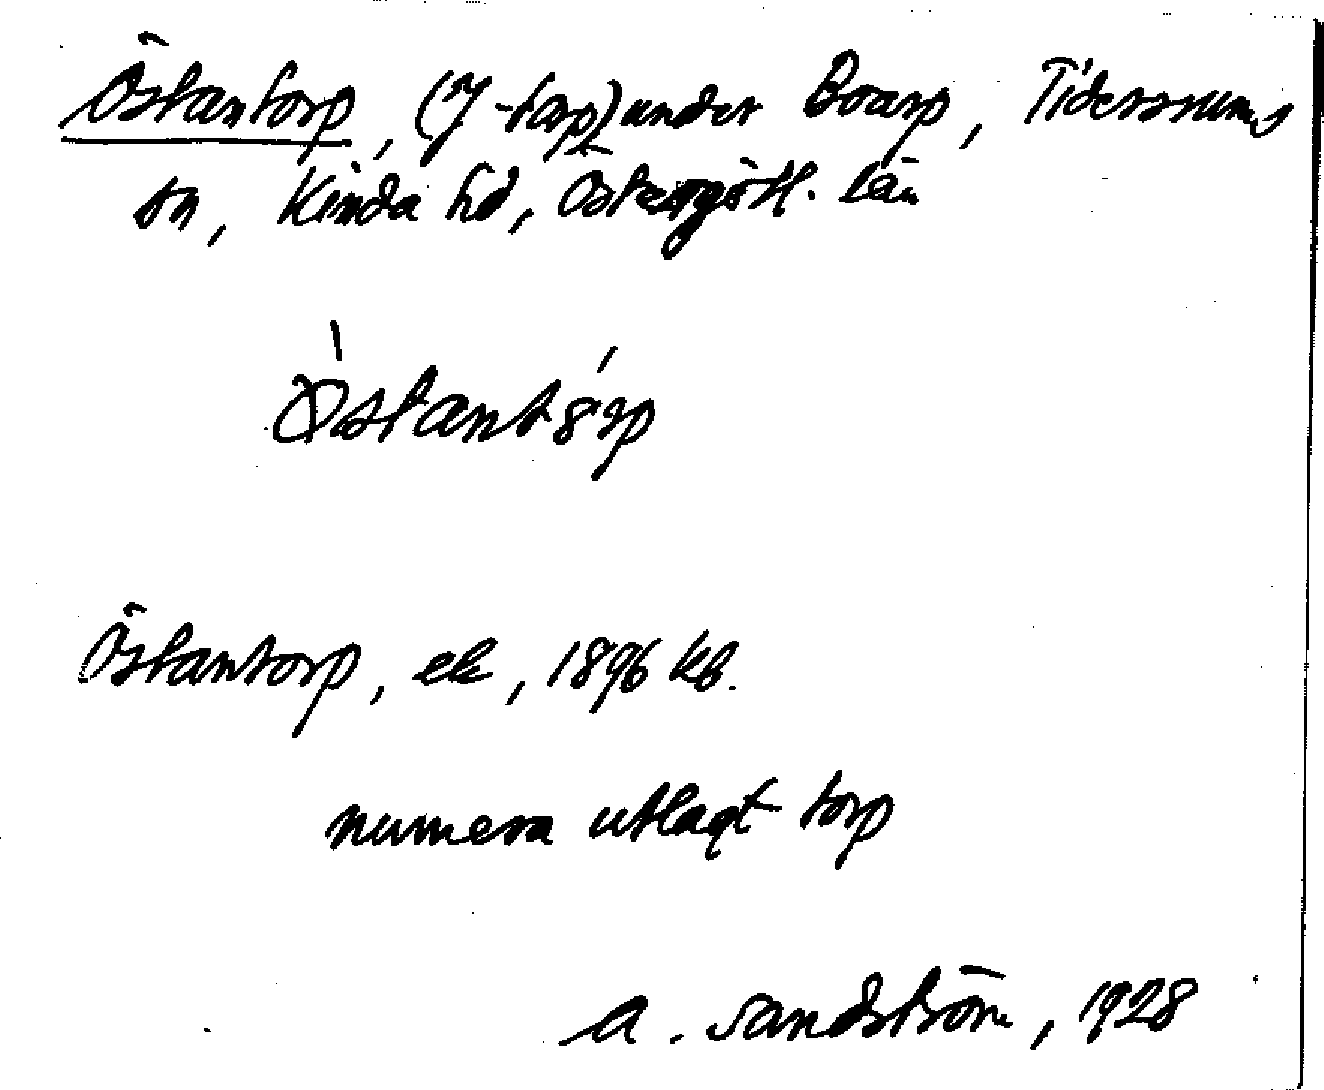 Östantorp, (f-torp) under Boarp, Tidersrums
sn, Kinda hd, Östergötl. län
Östantorp, ek, 1896 kb.
numera utlagt torp
A. Sandström, 1928